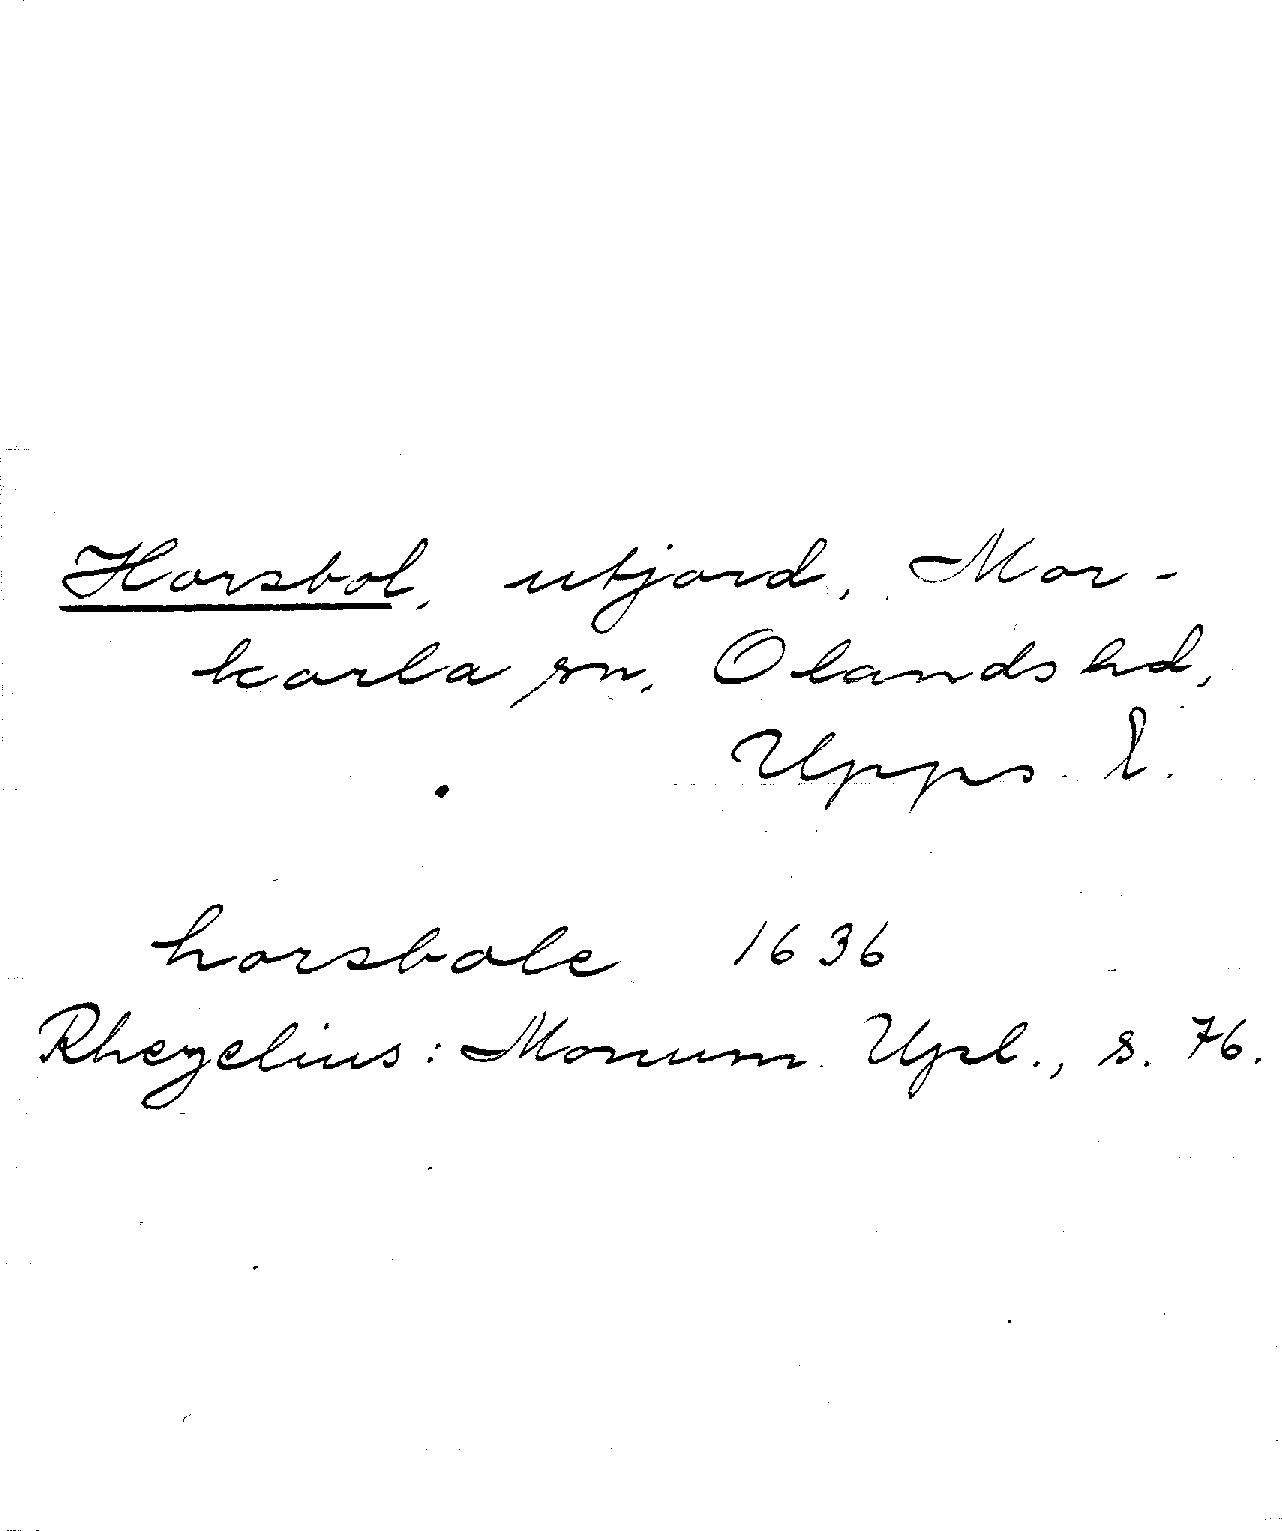 Horsbol, utjord, Mor-
karla sn, Olands hd,
Upps. l.
horsbole 1636
Rhezelius: Monum. Upl., s. 76.